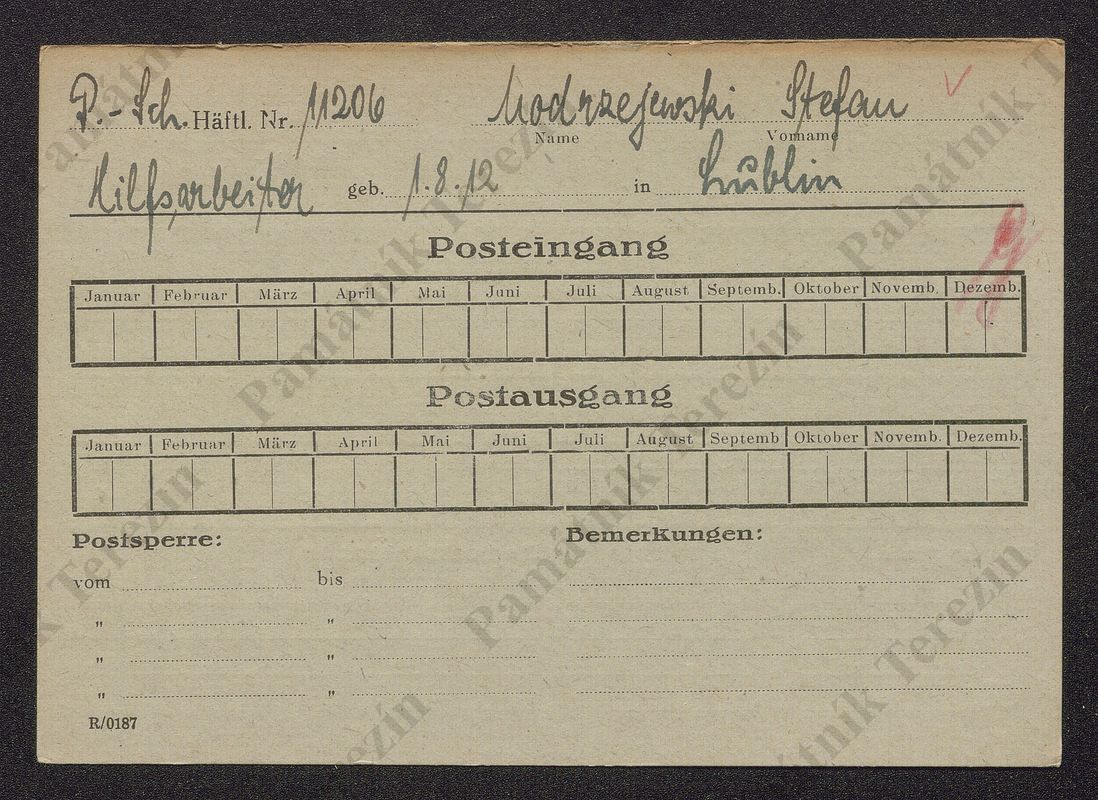 P.-Sch. Häftl. Nr. 11206 Modrzejewski Stefan
Name Vorname
Hilfsarbeiter geb. 1.8.12 in Lublin
Posteingang
Januar Februar März April Mai Juni Juli August Septemb. Oktober Novemb. Dezemb.
Postausgang
Januar Februar März April Mai Juni Juli August Septemb Oktober Novemb. Dezemb.
Postsperre: Bemerkungen:
vom bis
" "
" "
" "
R/0187
Památník Terezín